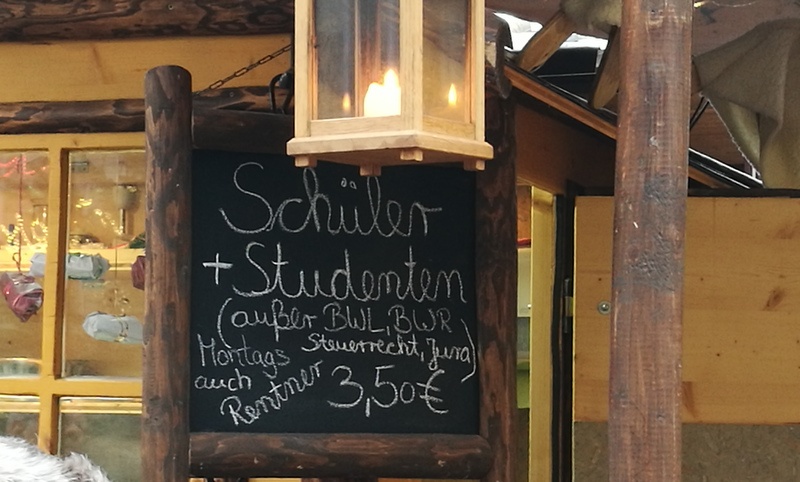 Schüler
+ Studenten
(außer BWL, BWR
Steuerrecht, Jura)
Montags
auch
Rentner
3,50€